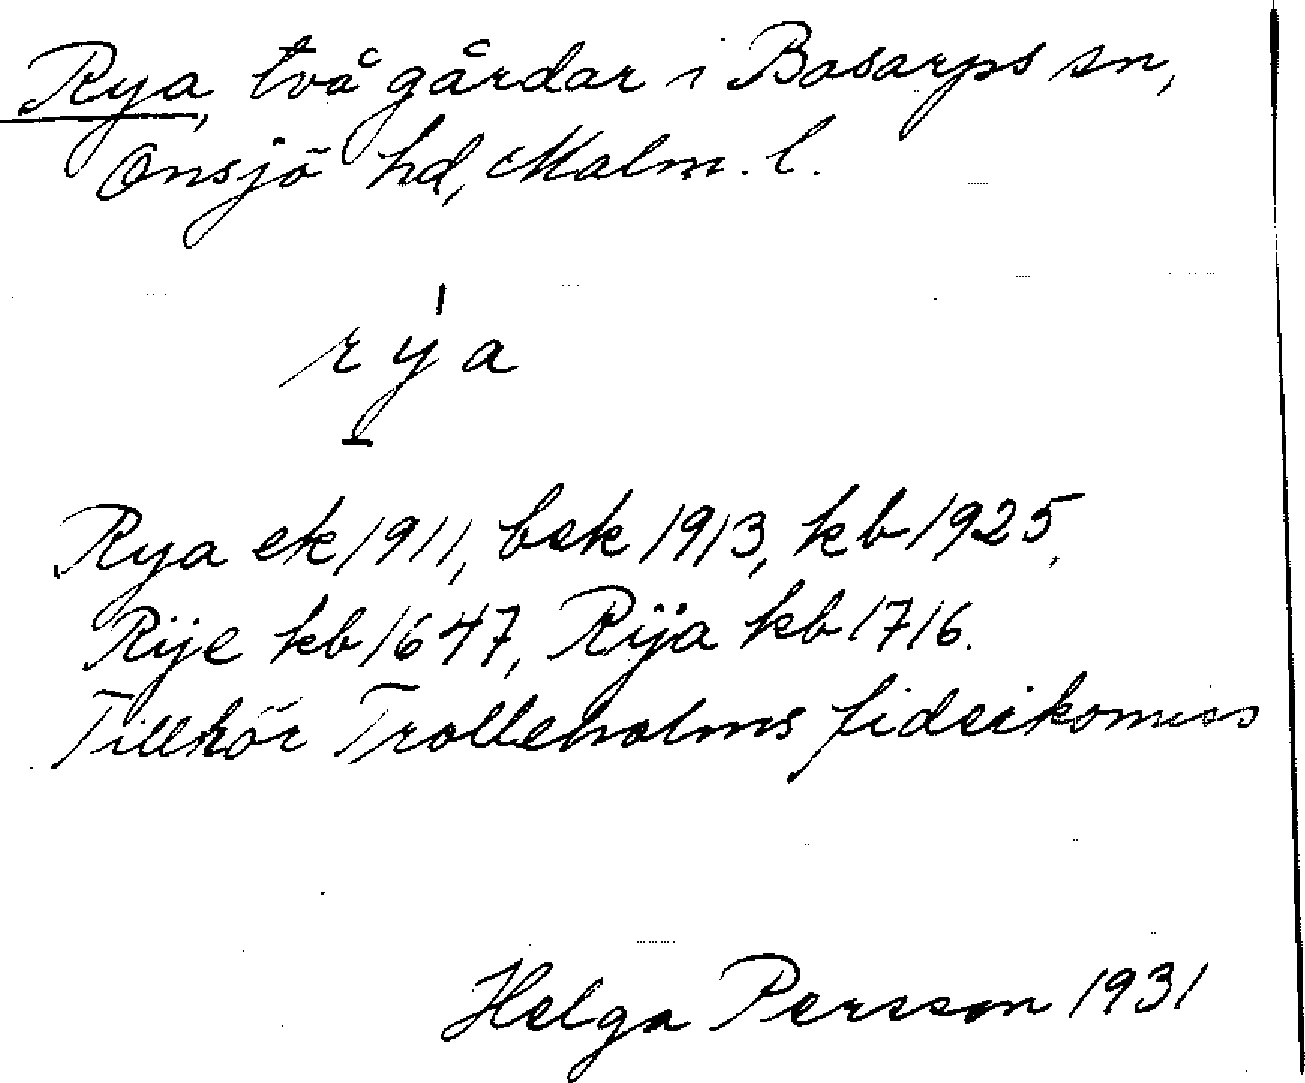 Rya, två gårdar i Bosarps sn,
Onsjö hd, Malm. l.
rya
Rya ek 1911, bek 1913, kb 1925,
Rije kb 1647, Rÿa kb 1716.
Tillhör Trolleholms fideikomiss
Helga Persson 1931